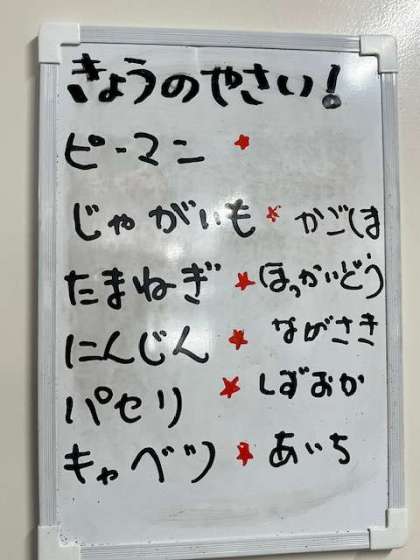 きょうのやさい!
ピーマン ★
じゃがいも ★ かごしま
たまねぎ ★ ほっかいどう
にんじん ★ ながさき
パセリ ★ しずおか
キャベツ ★ あいち